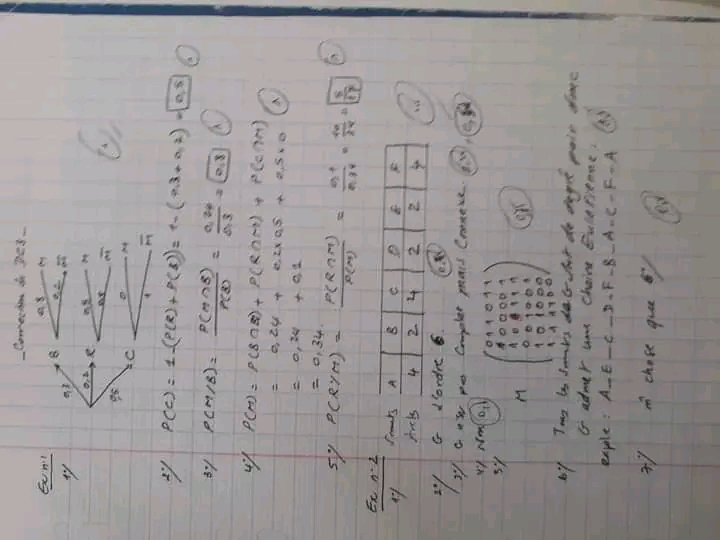 - Correction du DC3 -
Ex n°1
1°/
0,3 B 0,8 M
0,2 M̅
0,2 R 0,5 M
0,5 M̅
0,5 C 0 M
1 M̅
2°/ P(C) = 1 - (P(R) + P(B)) = 1 - (0,3 + 0,2) = 0,5
3°/ P(M/B) = P(M∩B) / P(B) = 0,24 / 0,3 = 0,8
4°/ P(M) = P(B∩M) + P(R∩M) + P(C∩M)
= 0,24 + 0,2x0,5 + 0,5x0
= 0,24 + 0,1
= 0,34.
5°/ P(R/M) = P(R∩M) / P(M) = 0,1 / 0,34 = 10 / 34 = 5 / 17
Ex n°2
1°/ Somts A B C D E F
4 2 4 2 2 4
2°/ G d'ordre 6
3°/ G est pas Complet mais Connexe.
4°/ Non
5°/
M
6°/ Tous les Somts de G sont de degré pair donc
G admet une chaine Eulérienne.
exple : A - E - C - D - F - B - A - C - F - A
7°/ m̂ chose que 6°/